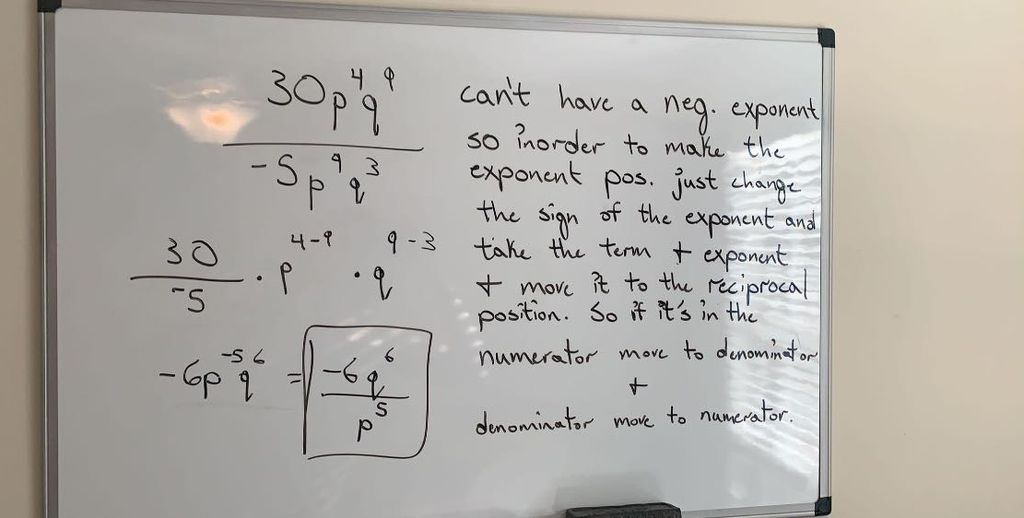 30p⁴q⁹
-5p⁹q³
30/-5 · p⁴⁻⁹ · q⁹⁻³
-6p⁻⁵q⁶ = -6q⁶/p⁵
can't have a neg. exponent
so inorder to make the
exponent pos. just change
the sign of the exponent and
take the term + exponent
+ move it to the reciprocal
position. So if it's in the
numerator move to denominator
+
denominator move to numerator.